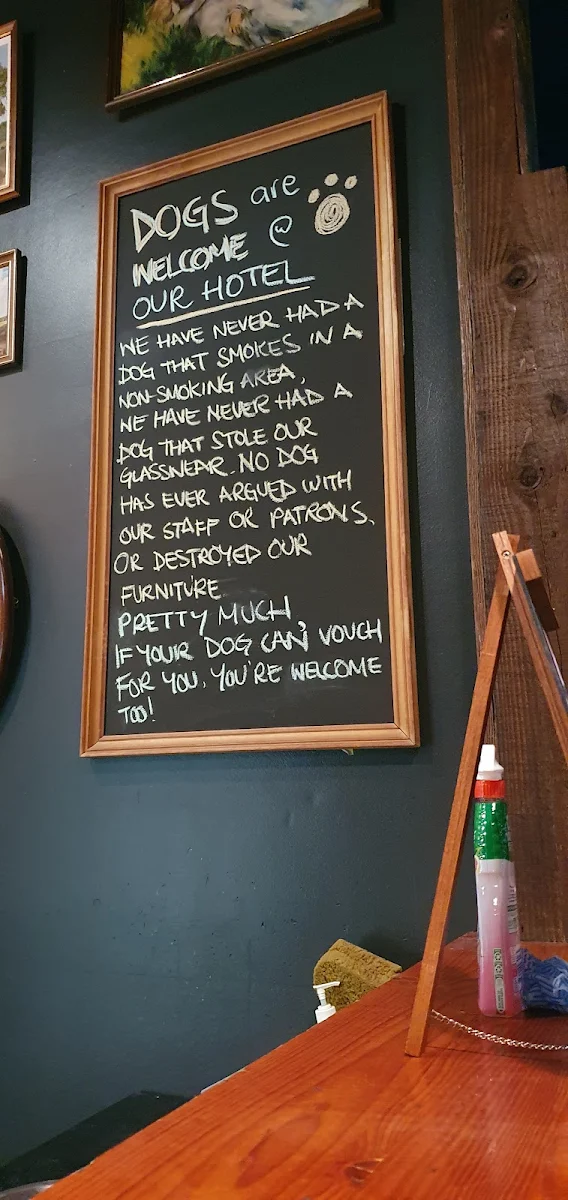 DOGS are
WELCOME @
OUR HOTEL
WE HAVE NEVER HAD A
DOG THAT SMOKES IN A
NON-SMOKING AREA,
WE HAVE NEVER HAD A
DOG THAT STOLE OUR
GLASSWEAR. NO DOG
HAS EVER ARGUED WITH
OUR STAFF OR PATRONS.
OR DESTROYED OUR
FURNITURE
PRETTY MUCH,
IF YOUR DOG CAN VOUCH
FOR YOU, YOU'RE WELCOME
TOO!